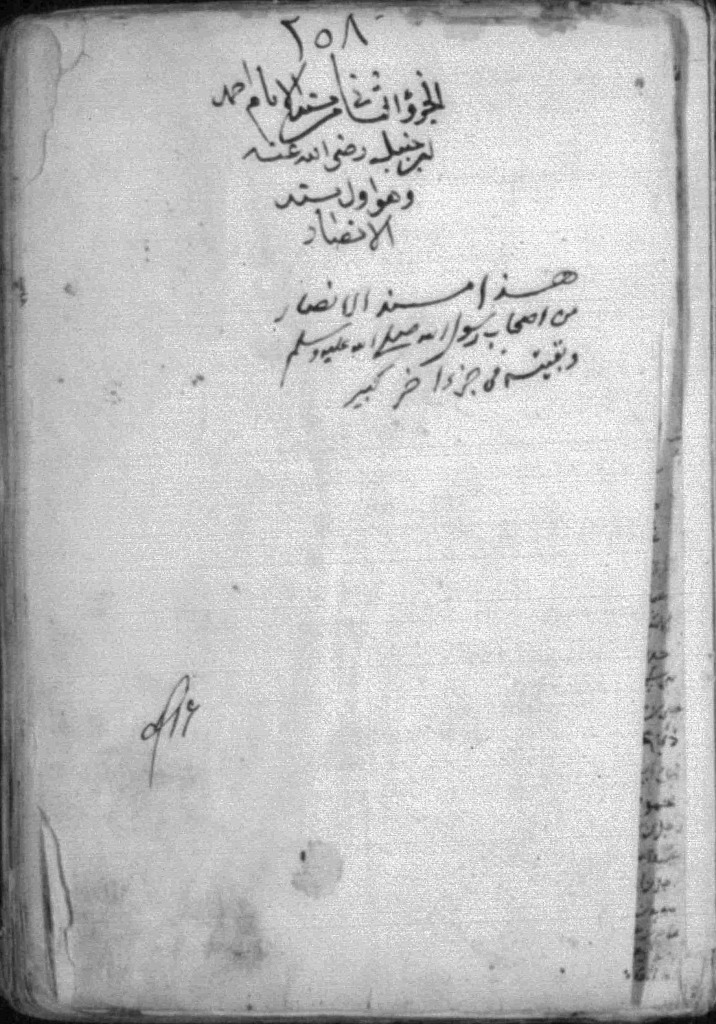 ٢٥٨
الجزؤ الثاني من مسند الامام احمد
ابن حنبل رضى الله عنه
وهو اول مسند
الانصار
هذا مسند الانصار
من اصحاب رسول الله صلى الله عليه وسلم
وبقيته فى جزء اخر كبير